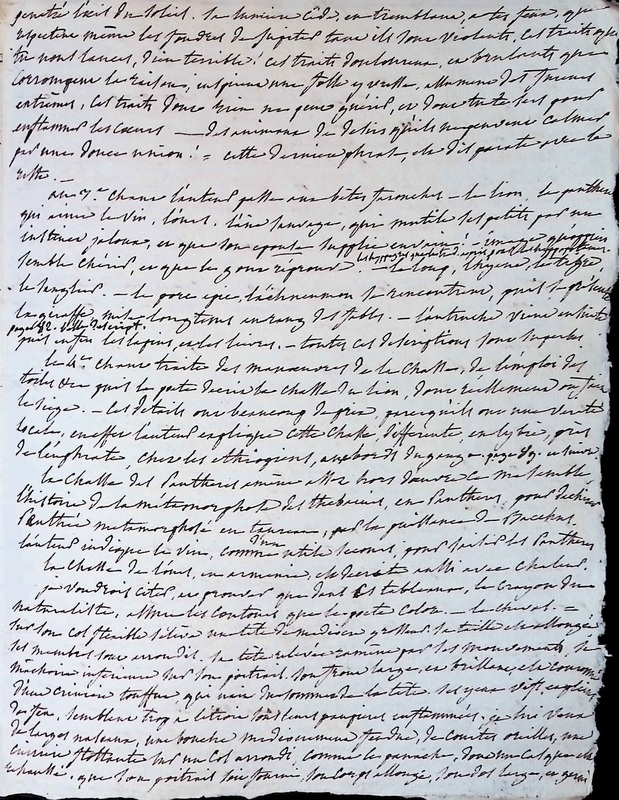 l'œil du soleil. Sa lumière cède, en tremblant, à tes feux, que
même les foudres de Jupiter tant ils sont violents. Ces traits que
tu nous lances, dieu terrible! ces traits douloureux, en brulants que
corrompent la raison, inspirent une folle yvresse, allument des fureurs
extrêmes, ces traits dont rien ne peut guérir, et dont tu te sers pour
enflammer les cœurs — des animaux de desirs qu'ils ne peuvent calmer
par une douce union! = cette derniere phrase, elle disparate avec le
reste. —
au 3e chant l'auteur passe aux bêtes farouches — le lion, la panthere
qui aime le vin, l'ours. l'âne sauvage, qui mutile ses petits par un
instinct jaloux, et que son epouse supplie en vain! —
semble chérir, et que le gout réprouve. — le loup, l'hyene, le tigre
le sanglier. — le porc epic, l'ichneumon se rencontrent, puis
la giraffe, mise longtems au rang des fables. — l'autruche vient ensuite
page 82. belle descript.
puis enfin les lapins, et les lievres. — toutes ces descriptions sont superbes
le 4e chant traite des manœuvres de la chasse, de l'emploi des
toiles &c puis le poete decrit la chasse du lion, dont réellement on fait
le siege. — Ces details ont beaucoup de prix, parcequ'ils ont une verité
locale, en effet l'auteur explique cette chasse, differente, en lybie, près
de l'euphrate, chez les ethiopiens, aux bords du gange
la chasse des Pantheres amène assez hors d'œuvre ce me semble
l'histoire de la métamorphose des thebaines, en Pantheres, pour déchirer
Penthée metamorphosé en taureau, par la puissance de Bacchus.
l'auteur indique le vin, comme d'un utile secours, pour saisir les Pantheres
la chasse de l'ours, en armenie, est decrite aussi avec chaleur.
je voudrois citer, et prouver que dans ces tableaux, le crayon d'un
naturaliste, assure les contours que le poete colore. — le cheval. =
sur son col flexible s'élève une tête de mediocre grosseur sa taille est allongée
ses membres sont arrondis. sa tête relevée ramène par ses mouvements, la
machoire inferieure sur son poitrail. son front large, et brillant, est couronné
d'une criniere touffue qui nait du sommet de la tête. ses yeux vifs, et pleins
de feu, semblent trop à l'étroit sous leurs paupieres enflammées. je lui veux
de larges naseaux, une bouche mediocrement fendue, de courtes oreilles, une
criniere flottante sur un col arrondi, comme le panache, dont un casque est
rehaussé. que son poitrail soit fourni, son corps allongé, son dos large, et garni